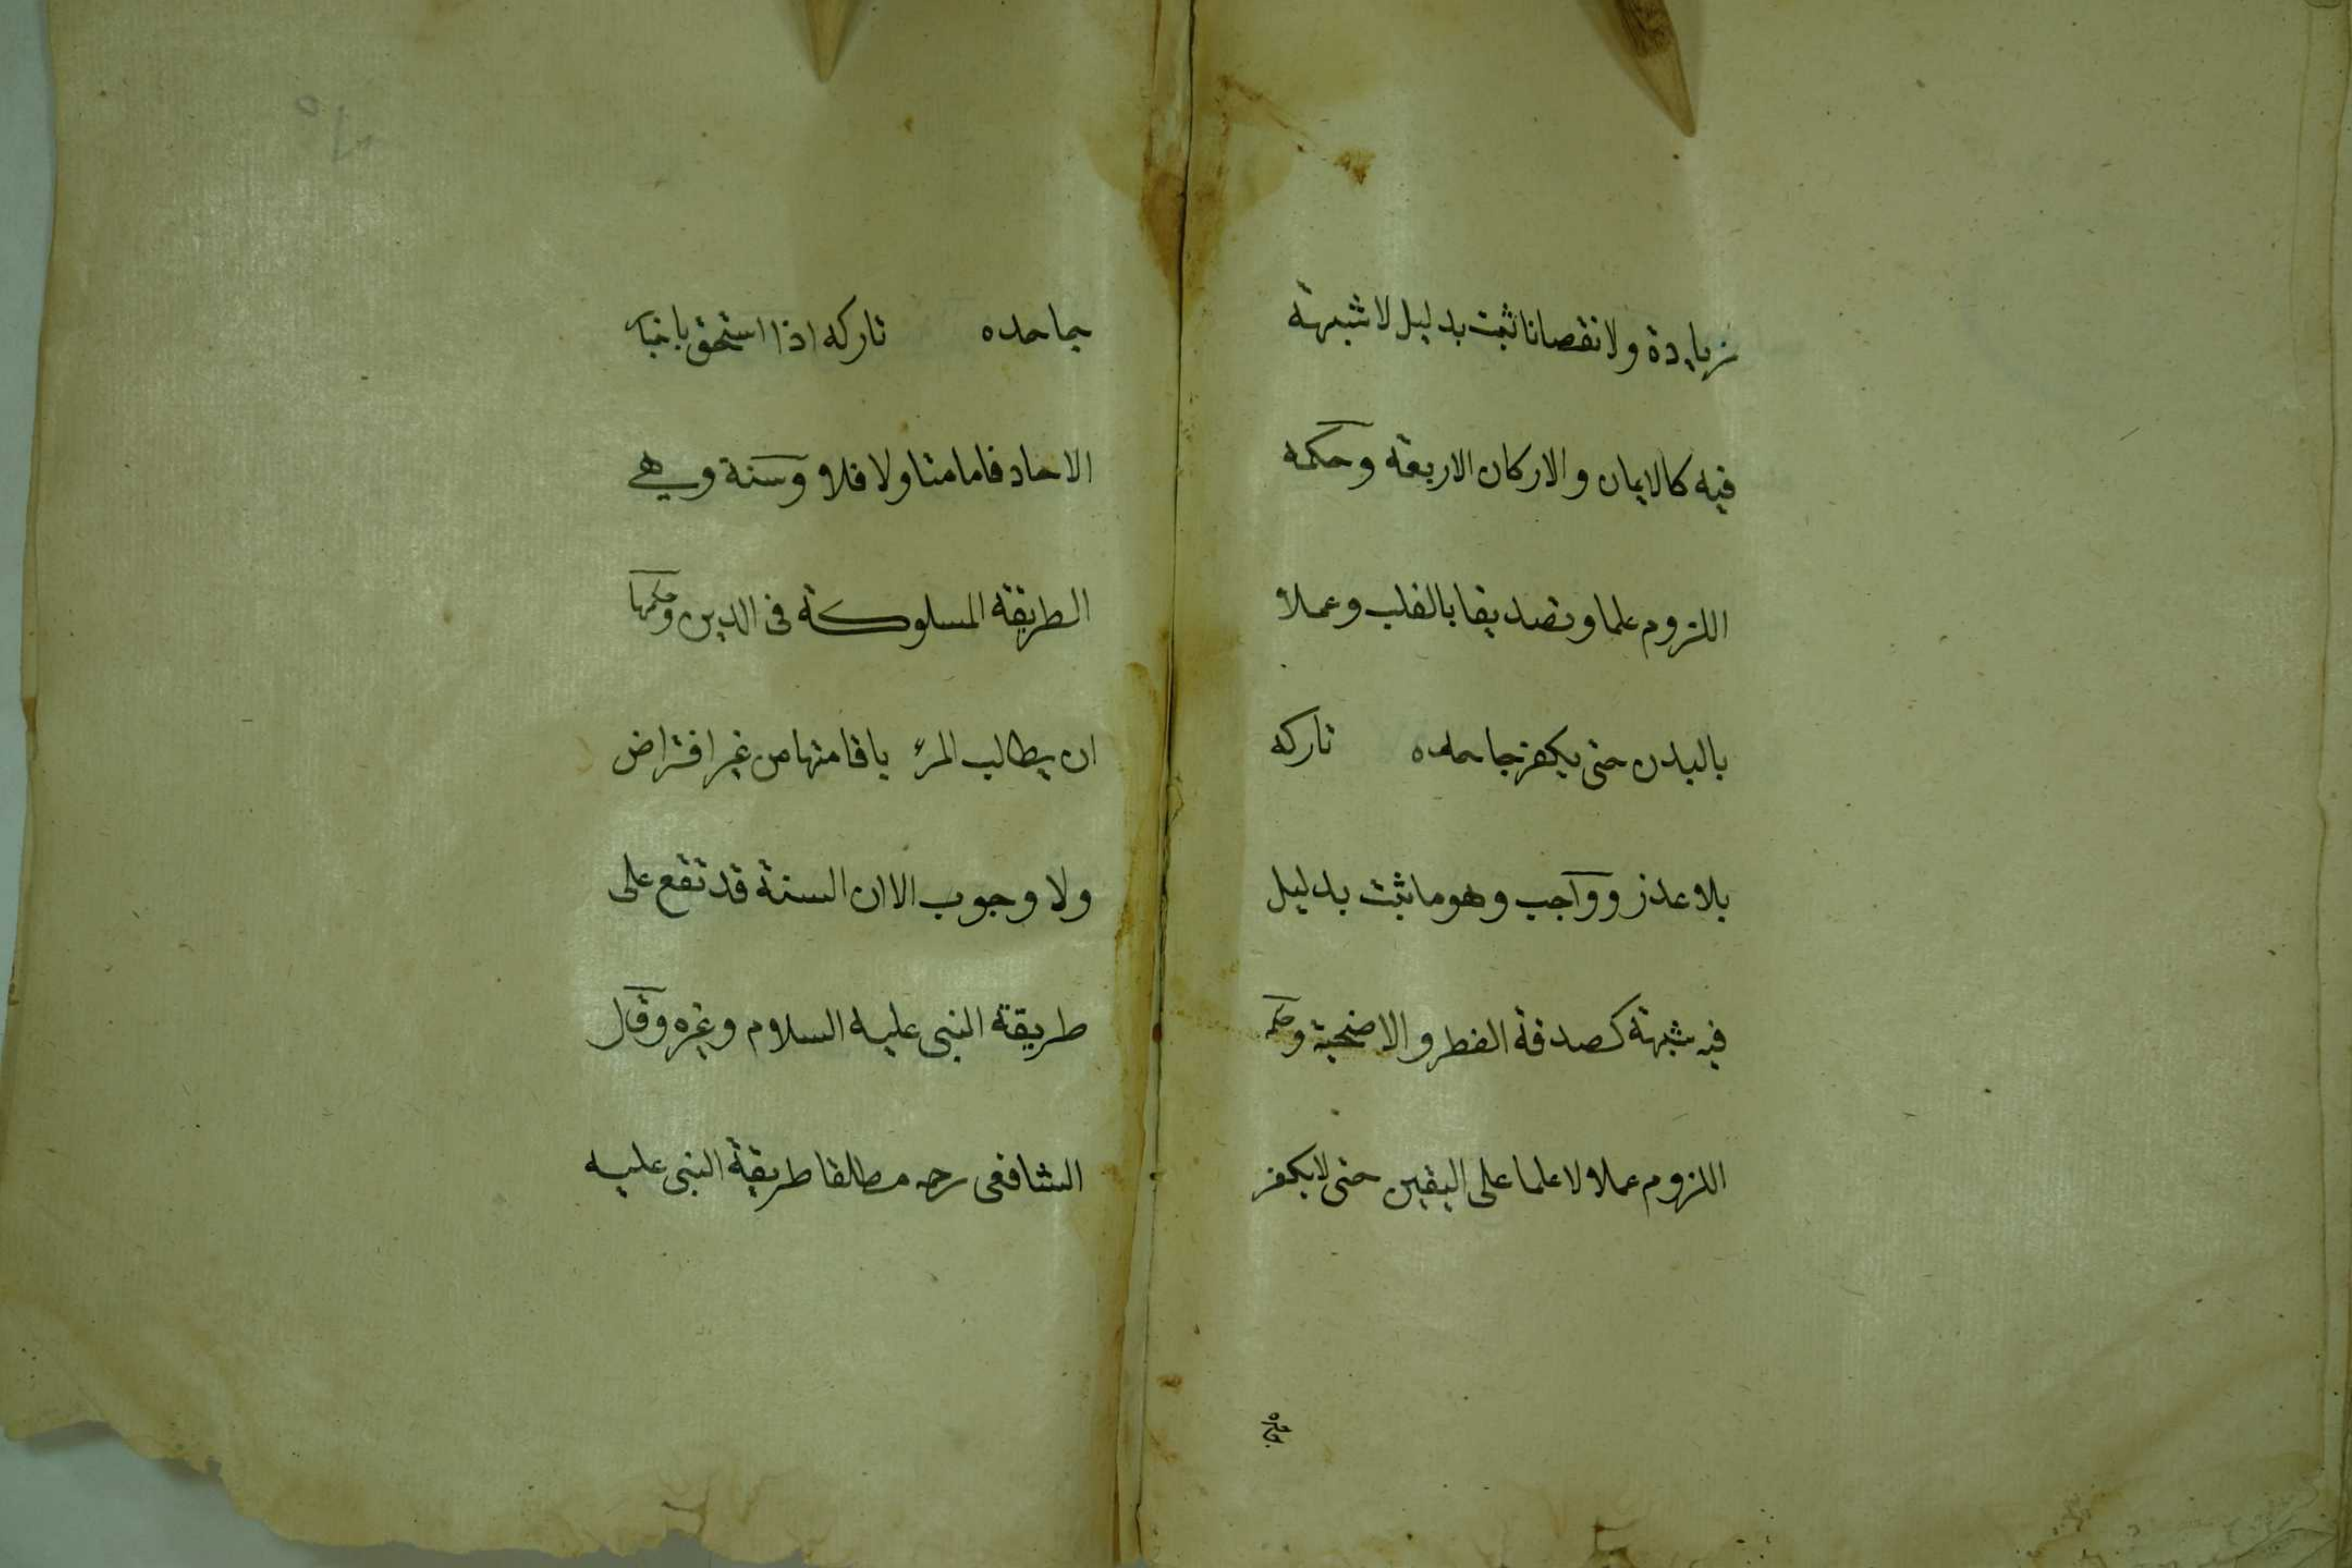 زيادة ولا نقصانا ثبت بدليل لا شبهة
فيه كالايمان والاركان الاربعة وحكمه
اللزوم علما وتصديقا بالقلب وعملا
بالبدن حتى يكفر جاحده تاركه
بلا عذر وواجب وهو ما ثبت بدليل
فيه شبهة كصدقة الفطر والاضحية وحكمه
اللزوم عملا لا علما على اليقين حتى لا يكفر
جاحده
جاحده تاركه اذا استحق باخبار
الاحاد فاما متاولا فلا وسنة وهي
الطريقة المسلوكة فى الدين وحكمها
ان يطالب المرء باقامتها من غير افتراض
ولا وجوب الا ان السنة قد تقع على
طريقة النبى عليه السلام وغيره وقال
الشافعى رحمه مطلقا طريقة النبى عليه